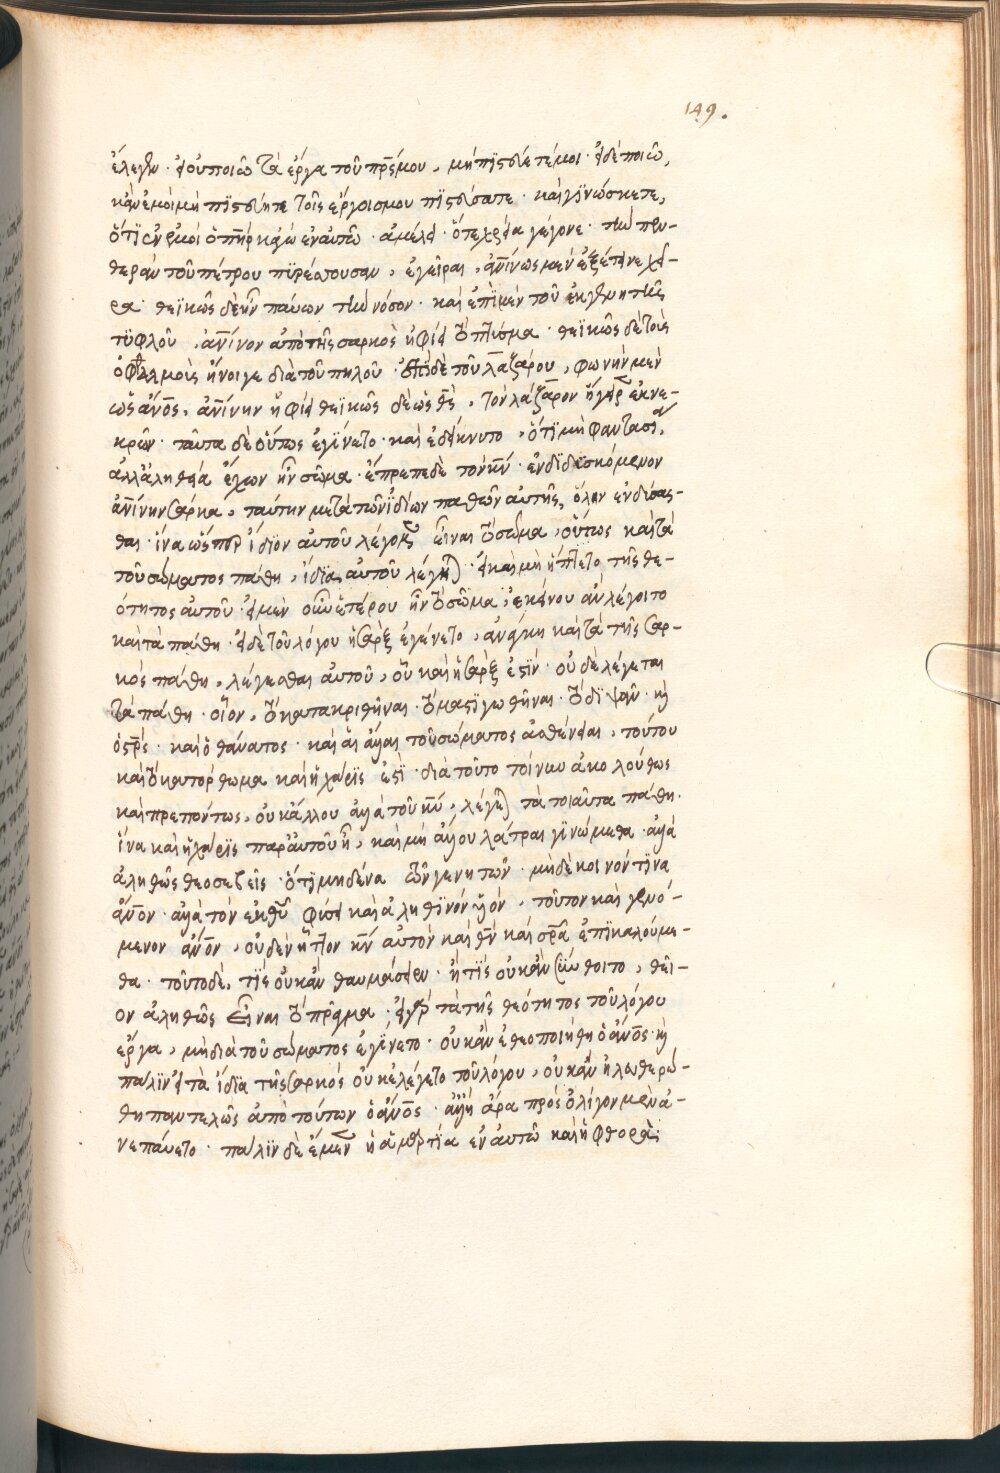 149.
ἔλεγεν· εἰ οὐ ποιῶ τὰ ἔργα τοῦ πρς μου, μὴ πιστεύετέ μοι· εἰ δὲ ποιῶ,
κἂν ἐμοὶ μὴ πιστεύητε τοῖς ἔργοις μου πιστεύσατε· καὶ γινώσκετε,
ὅτι ἐν ἐμοὶ ὁ πὴρ κἀγὼ ἐν αὐτῶ· ἀμέλει ὅτε χρεία γέγονε· τὴν πεν-
θερὰν τοῦ πέτρου πυρέσσουσαν, ἐγεῖραι, ἀνίνως μὲν ἐξέτεινε χεῖ-
ρα· θεϊκῶς δὲ ἦν παύων τὴν νόσον· καὶ ἐπὶ μὲν τοῦ ἐκ γενητῆς
τυφλοῦ, ἀνίνον ἀπὸ τῆς σαρκὸς ἠφίει τὸ πτύσμα· θεϊκῶς δὲ τοὺς
ὀφθαλμοὺς ἤνοιγε διὰ τοῦ πηλοῦ· ἐπὶ δὲ τοῦ λαζάρου, φωνὴν μὲν
ὡς ἄνος, ἀνίνην ἠφίει θεϊκῶς δὲ ὡς θς, τὸν λάζαρον ἤγειρεν ἐκ νε-
κρῶν· ταῦτα δὲ οὕτως ἐγίνετο· καὶ ἐδείκνυτο, ὅτι μὴ φαντασίαν,
ἀλλ' ἀληθεία ἔχων ἦν σῶμα· ἔπρεπε δὲ τὸν κν· ἐνδιδυσκόμενον
ἀνίνην σάρκα, ταύτην μετὰ τῶν ἰδίων παθῶν αὐτῆς, ὅλην ἐνδύσας-
θαι· ἵνα ὥσπερ ἴδιον αὐτοῦ λέγομεν εἶναι τὸ σῶμα, οὕτως καὶ τὰ
τοῦ σώματος πάθη, ἴδια αὐτοῦ λέγηται· εἰ καὶ μὴ ἥπτετο τῆς θε-
ότητος αὐτοῦ· εἰ μὲν οὖν ἑτέρου ἦν τὸ σῶμα, ἐκείνου ἂν λέγοιτο
καὶ τὰ πάθη· εἰ δὲ τοῦ λόγου ἡ σὰρξ ἐγένετο, ἀνάγκη καὶ τὰ τῆς σαρ-
κὸς πάθη, λέγεσθαι αὐτοῦ, οὗ καὶ ἡ σὰρξ ἐστίν· οὗ δὲ λέγεται
τὰ πάθη· οἷον, τὸ κατακριθῆναι· τὸ μαστιγωθῆναι· τὸ διψᾶν· κὶ
ὁ στρς· καὶ ὁ θάνατος· καὶ αἱ ἄλλαι τοῦ σώματος ἀσθένειαι, τούτου
καὶ τὸ κατόρθωμα καὶ ἡ χάρις ἐστί· διὰ τοῦτο τοίνυν ἀκολούθως
καὶ πρεπόντως, οὐκ ἄλλου ἀλλὰ τοῦ κυ, λέγεται τὰ τοιαῦτα πάθη·
ἵνα καὶ ἡ χάρις παρ' αὐτοῦ ᾖ, καὶ μὴ ἄλλου λάτραι γινώμεθα· ἀλλὰ
ἀληθῶς θεοσεβεῖς· ὅτι μηδένα τῶν γενητῶν· μηδὲ κοινόν τινα
ἄνον· ἀλλὰ τὸν ἐκ θυ φύσει καὶ ἀληθινὸν υἱόν, τοῦτον καὶ γενό-
μενον ἄνον, οὐδὲν ἧττον κν αὐτὸν καὶ θν καὶ σρα ἐπικαλούμε-
θα· τοῦτο δὲ, τίς οὐκ ἂν θαυμάσειεν· ἢ τίς οὐκ ἂν σύνθοιτο, θεῖ-
ον ἀληθῶς εἶναι τὸ πρᾶγμα· εἰ γὰρ τὰ τῆς θεότητος τοῦ λόγου
ἔργα, μὴ διὰ τοῦ σώματος ἐγίνετο· οὐκ ἂν ἐθεοποιήθη ὁ ἄνος· κὶ
πάλιν εἰ τὰ ἴδια τῆς σαρκὸς οὐκ ἐλέγετο τοῦ λόγου, οὐκ ἂν ἠλευθερώ-
θη παντελῶς ἀπὸ τούτων ὁ ἄνος· ἀλλ' εἰ ἄρα πρὸς ὀλίγον μὲν ἀ-
νεπαύετο· πάλιν δὲ ἔμενεν ἡ ἁμαρτία ἐν αὐτῶ καὶ ἡ φθορὰ·